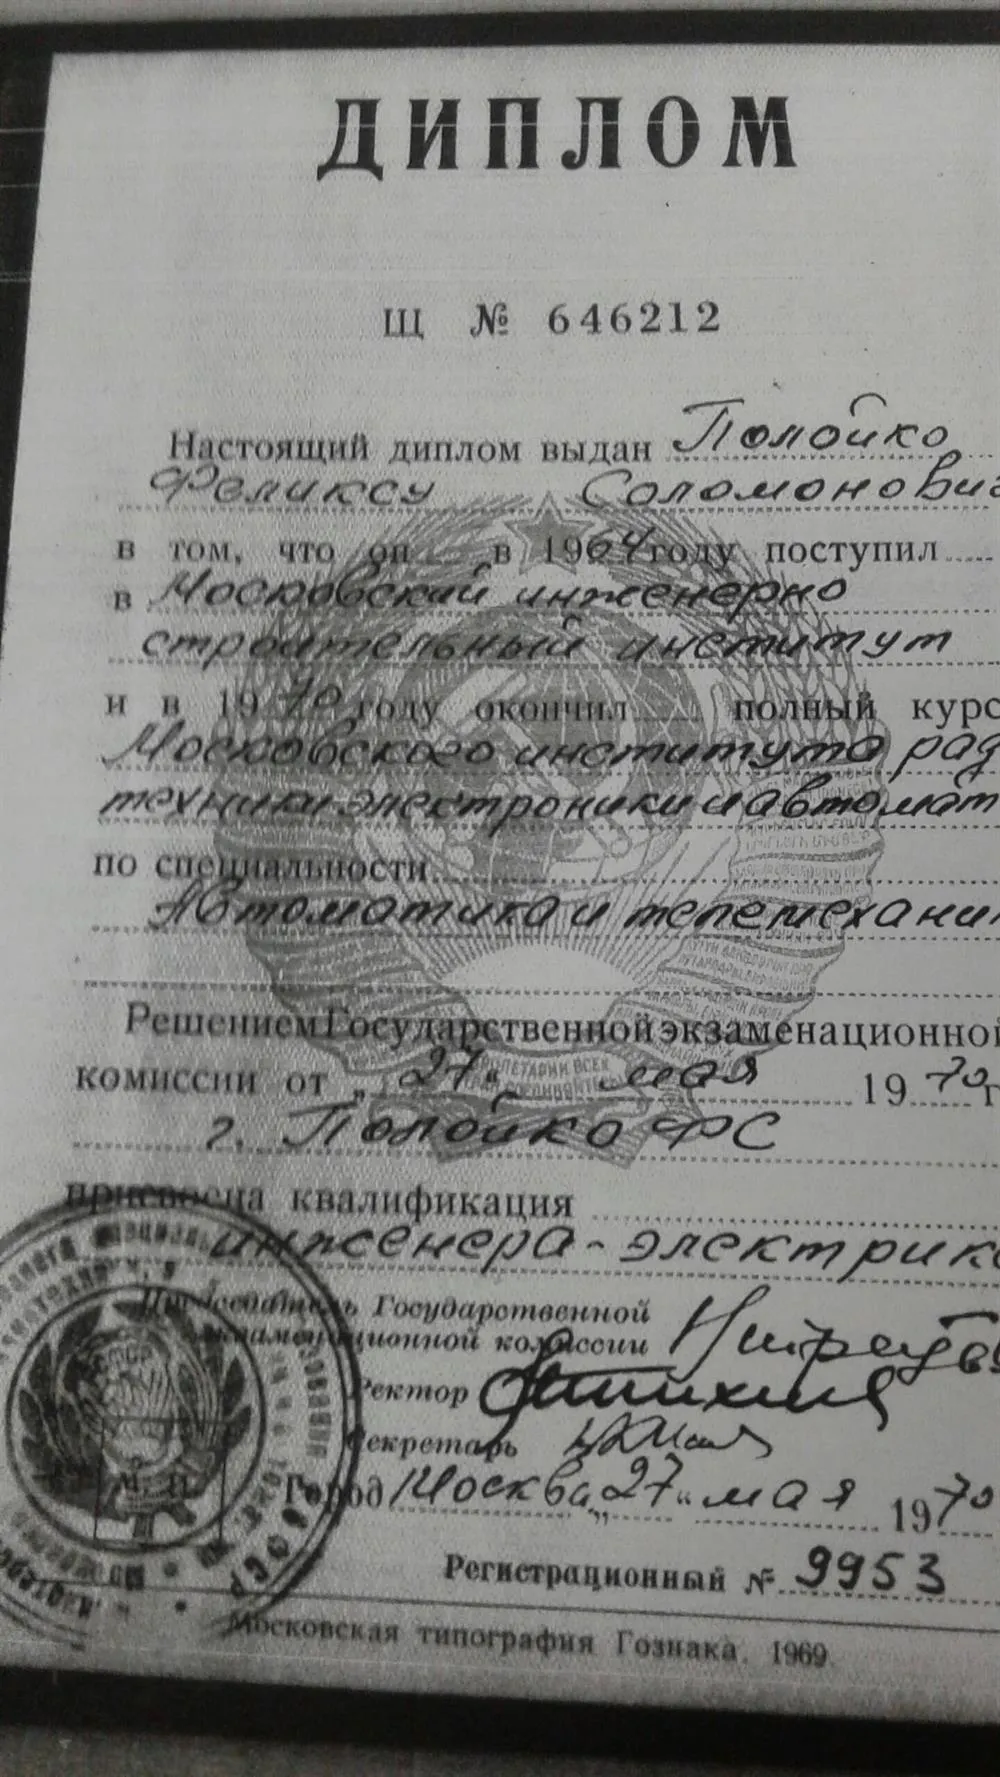 ДИПЛОМ
Щ № 646212
Настоящий диплом выдан Полойко
Феликсу Соломонович
в том, что он в 1964 году поступил
в Московский инженерно
строительный институт
и в 1970 году окончил полный курс
Московского института рад
техники электроники и автомат
по специальности
Автоматика и телемеханик
Решением Государственной экзаменационной
комиссии от „27" мая 1970 г
г. Полойко ФС
присвоена квалификация
инженера-электрик
Председатель Государственной
экзаменационной комиссии
Ректор
Секретарь
Город Москва „27" мая 1970
Регистрационный № 9953
Московская типография Гознака. 1969.